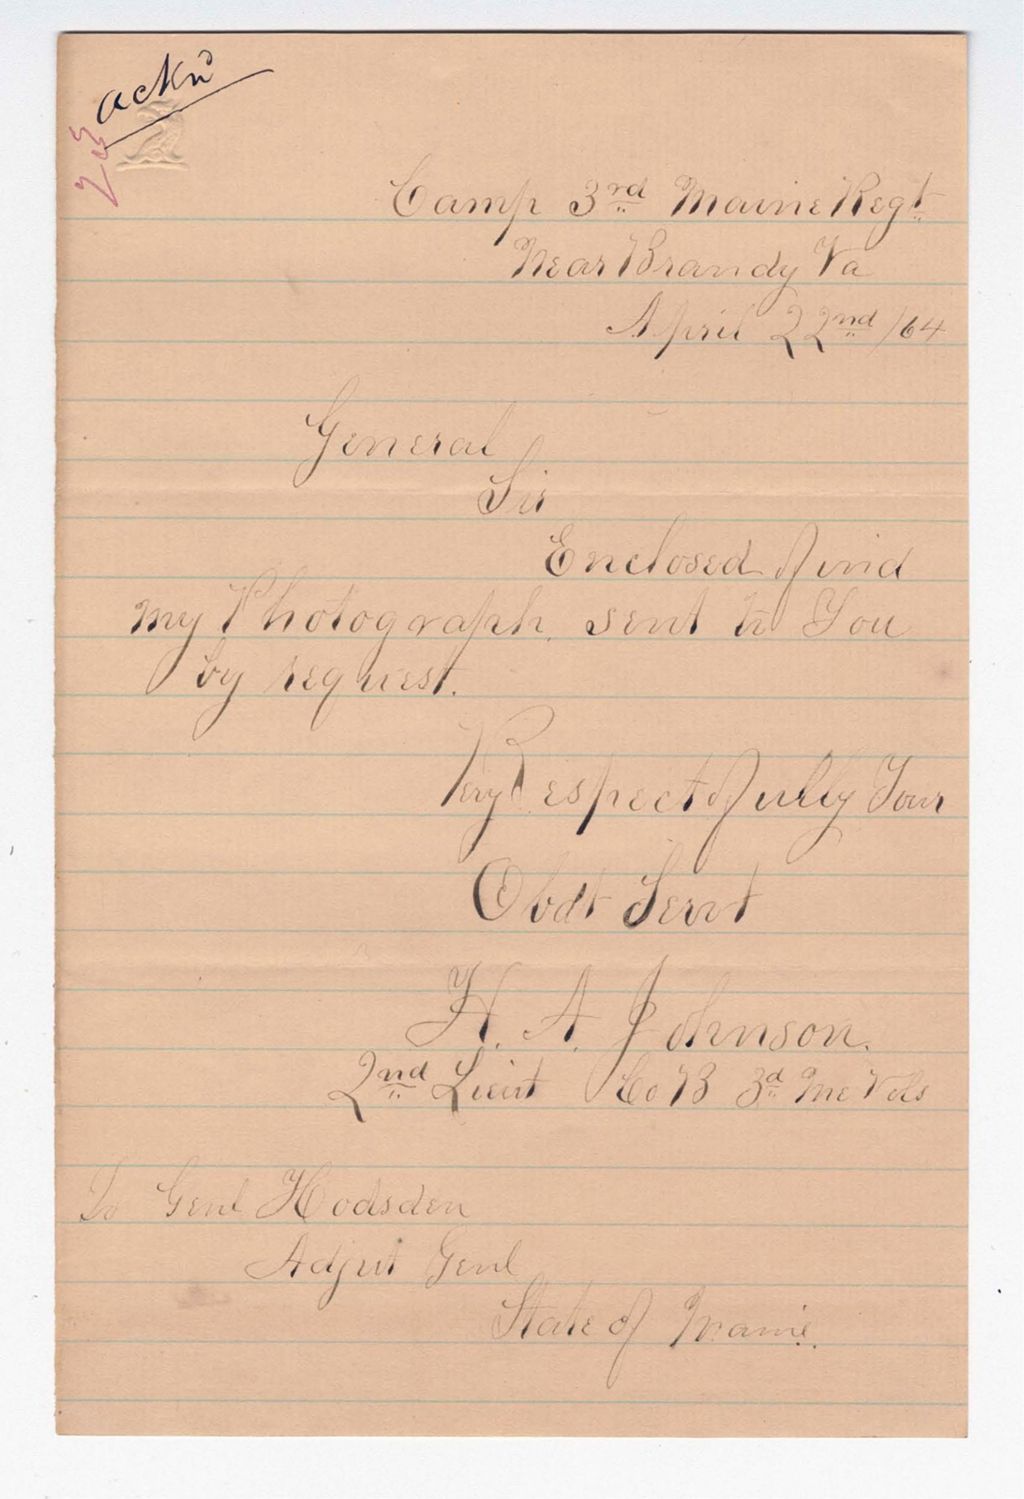 ackd
Camp 3rd Maine Regt
Near Brandy Va
April 22nd /64
General
Sir
Enclosed find
my Photograph, sent to You
by request.
Very Respectfully Your
Obdt Servt
H. A. Johnson.
2nd Lieut Co B 3d Me Vols
To Genl Hodsden
Adjut Genl
State of Maine.